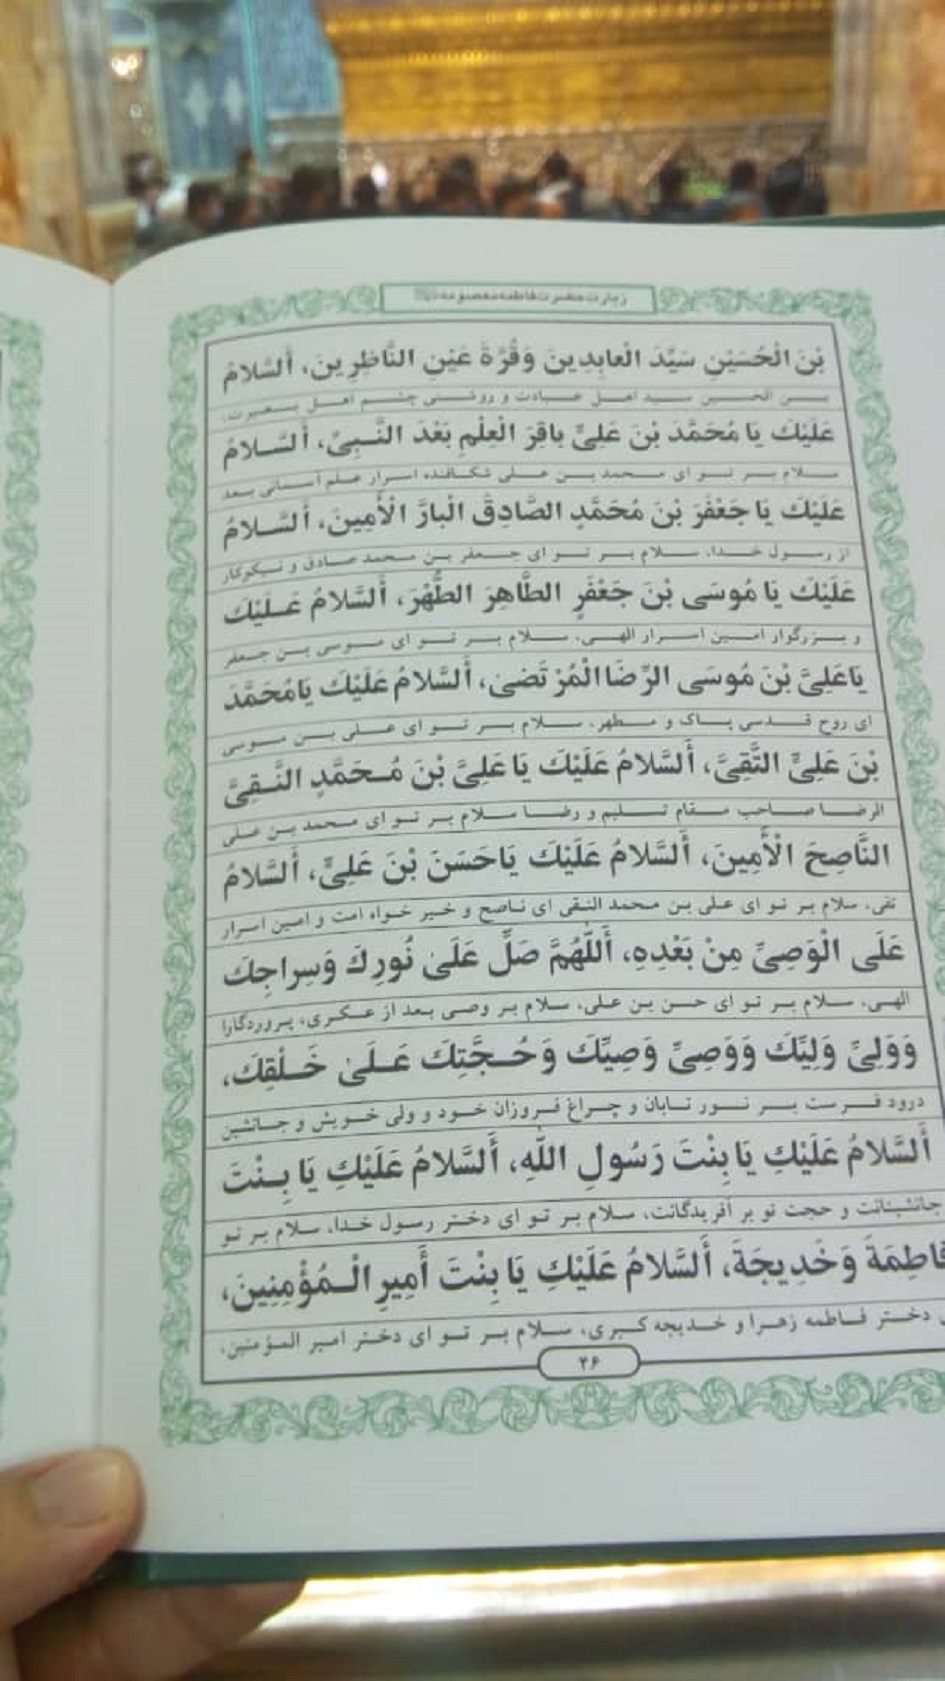 زیارت حضرت فاطمه معصومه
بْنَ الْحُسَيْنِ سَيِّدَ الْعابِدِينَ وَقُرَّةَ عَيْنِ النَّاظِرِينَ، أَلسَّلامُ
بن الحسین سید اهل عبادت و روشنی چشم اهل بصیرت،
عَلَيْكَ يَا مُحَمَّدَ بْنَ عَلِيٍّ باقِرَ الْعِلْمِ بَعْدَ النَّبِيِّ، أَلسَّلامُ
سلام بر تو ای محمد بن علی شکافنده اسرار علم آسمانی بعد
عَلَيْكَ يَا جَعْفَرَ بْنَ مُحَمَّدٍ الصَّادِقَ الْبارَّ الْأَمِينَ، أَلسَّلامُ
از رسول خدا، سلام بر تو ای جعفر بن محمد صادق و نیکوکار
عَلَيْكَ يَا مُوسَى بْنَ جَعْفَرٍ الطَّاهِرَ الطُّهْرَ، أَلسَّلامُ عَلَيْكَ
و بزرگوار امین اسرار الهی، سلام بر تو ای موسی بن جعفر
يَاعَلِيَّ بْنَ مُوسَى الرِّضَا الْمُرْتَضىٰ، أَلسَّلامُ عَلَيْكَ يَامُحَمَّدَ
ای روح قدسی پاک و مطهر، سلام بر تو ای علی بن موسی
بْنَ عَلِيٍّ التَّقِيَّ، أَلسَّلامُ عَلَيْكَ يَا عَلِيَّ بْنَ مُحَمَّدٍ النَّقِيَّ
الرضا صاحب مقام تسلیم و رضا سلام بر تو ای محمد بن علی
النَّاصِحَ الْأَمِينَ، أَلسَّلامُ عَلَيْكَ يَاحَسَنَ بْنَ عَلِيٍّ، أَلسَّلامُ
تقی، سلام بر تو ای علی بن محمد النقی ای ناصح و خیر خواه امت و امین اسرار
عَلَى الْوَصِيِّ مِنْ بَعْدِهِ، أَللّٰهُمَّ صَلِّ عَلَىٰ نُورِكَ وَسِراجِكَ
الهی، سلام بر تو ای حسن بن علی، سلام بر وصی بعد از عسکری، پروردگارا
وَوَلِيِّ وَلِيِّكَ وَوَصِيِّ وَصِيِّكَ وَحُجَّتِكَ عَلَىٰ خَلْقِكَ،
درود فرست بر نور تابان و چراغ فروزان خود و ولی خویش و جانشین
أَلسَّلامُ عَلَيْكِ يَا بِنْتَ رَسُولِ اللّٰهِ، أَلسَّلامُ عَلَيْكِ يَا بِنْتَ
جانشینانت و حجت تو بر آفریدگانت، سلام بر تو ای دختر رسول خدا، سلام بر تو
فَاطِمَةَ وَخَدِيجَةَ، أَلسَّلامُ عَلَيْكِ يَا بِنْتَ أَمِيرِ الْمُؤْمِنِينَ،
دختر فاطمه زهرا و خدیجه کبری، سلام بر تو ای دختر امیر المؤمنین،
۳۶